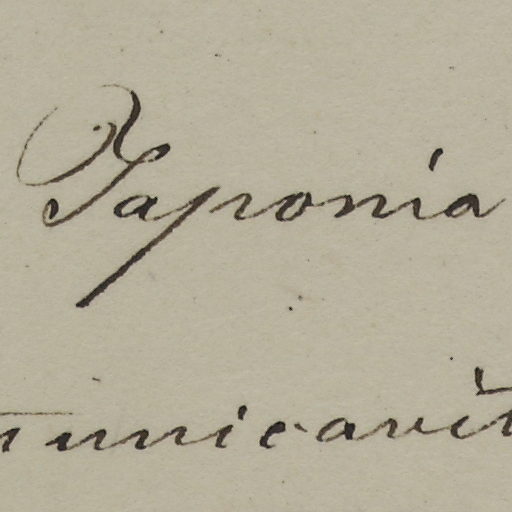 Japonia
municavit